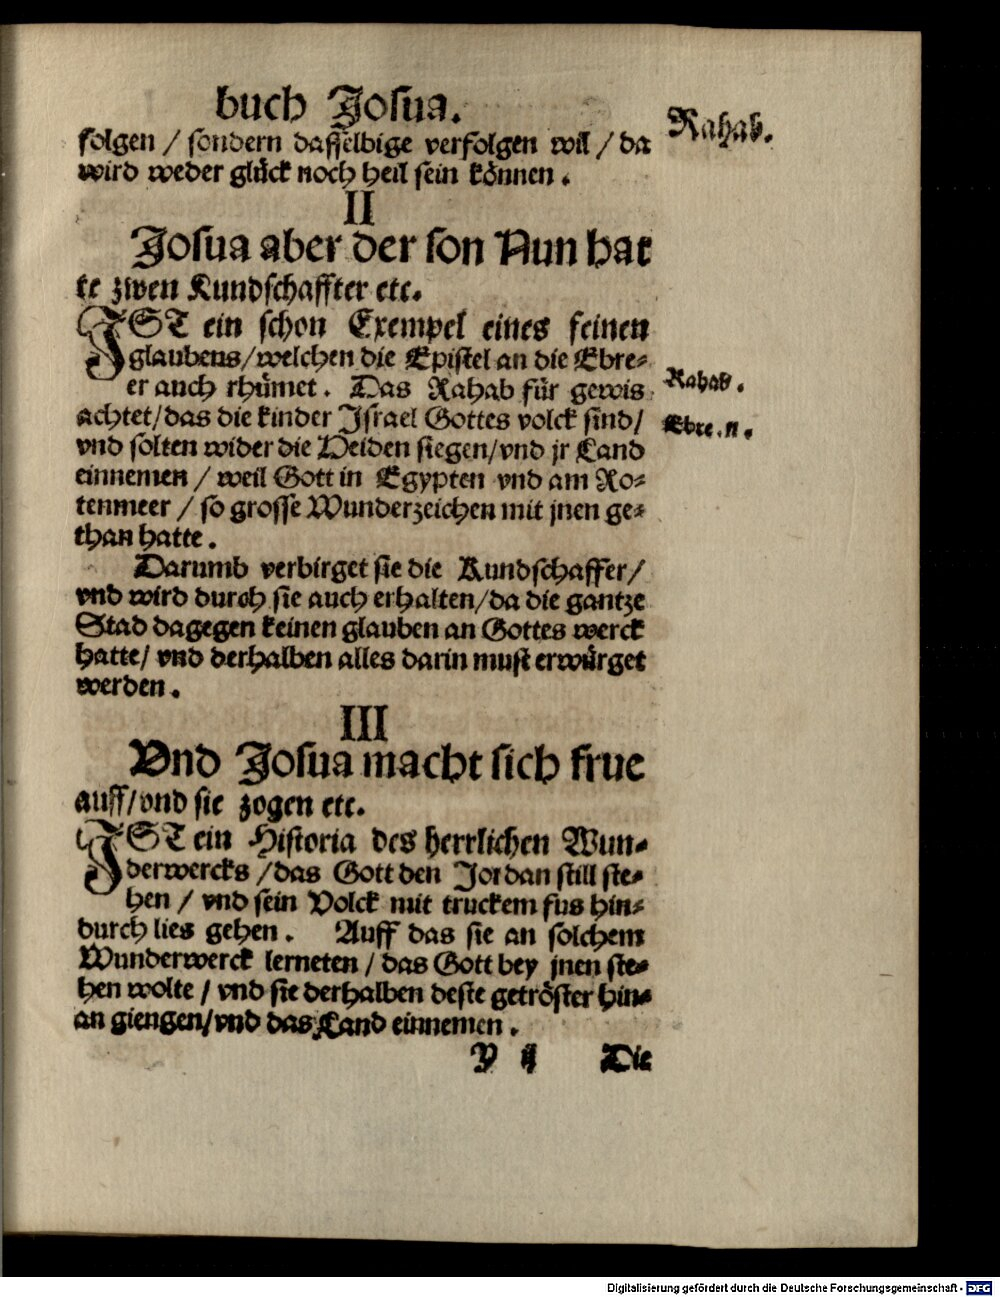 buch Josua.
Rahab.
folgen / sondern dasselbige verfolgen wil / da
wird weder glück noch heil sein können .
II
Josua aber der son Nun hat
te zwen Kundschaffter etc.
JST ein schon Exempel eines feinen
glaubens/welchen die Epistel an die Ebre-
er auch rhümet . Das Rahab für gewis
Rahab .
achtet/das die kinder Jsrael Gottes volck sind/
Ebre . 11 .
vnd solten wider die Heiden siegen/vnd jr Land
einnemen / weil Gott in Egypten vnd am Ro-
tenmeer / so grosse Wunderzeichen mit jnen ge-
than hatte .
Darumb verbirget sie die Kundschaffer/
vnd wird durch sie auch erhalten/da die gantze
Stad dagegen keinen glauben an Gottes werck
hatte/ vnd derhalben alles darin must erwürget
werden .
III
Vnd Josua macht sich frue
auff/vnd sie zogen etc.
JST ein Historia des herrlichen Wun-
derwercks /das Gott den Jordan still ste-
hen / vnd sein Volck mit truckem fus hin-
durch lies gehen . Auff das sie an solchem
Wunderwerck lerneten / das Gott bey jnen ste-
hen wolte / vnd sie derhalben deste getröster hin-
an giengen/vnd das Land einnemen .
Y ij Die
Digitalisierung gefördert durch die Deutsche Forschungsgemeinschaft - DFG